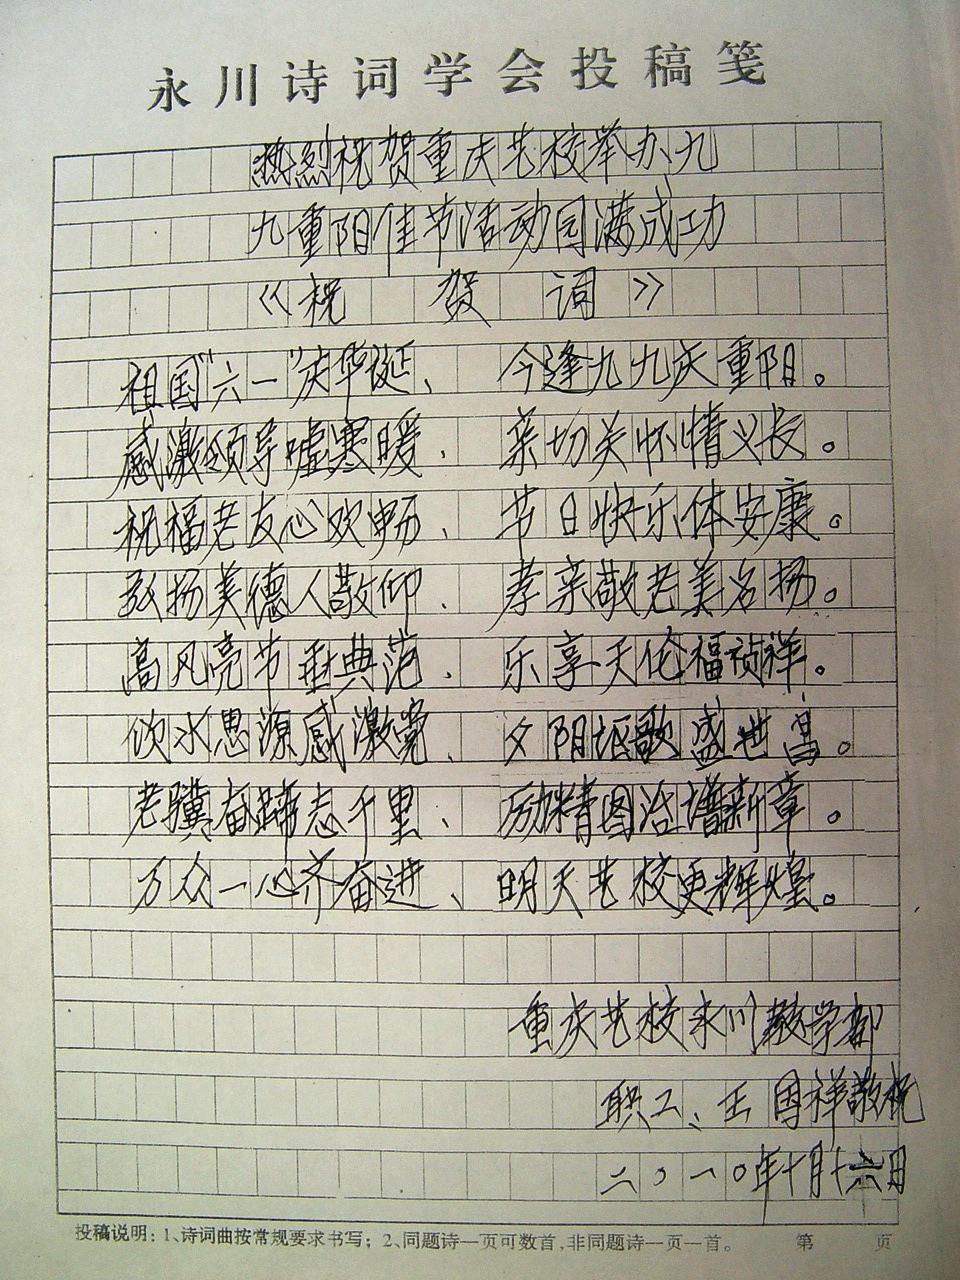 永川诗词学会投稿笺
热烈祝贺重庆艺校举办九
九重阳佳节活动园满成功
《祝贺词》
祖国“六一”庆华诞、今逢九九庆重阳。
感激领导嘘寒暖、亲切关怀情义长。
祝福老友心欢畅、节日快乐体安康。
弘扬美德人敬仰、孝亲敬老美名扬。
高风亮节垂典范、乐享天伦福祯祥。
饮水思源感激党、夕阳讴歌盛世昌。
老骥奋蹄志千里、励精图治谱新章。
万众一心齐奋进、明天艺校更辉煌。
重庆艺校永川教学部
职工、王国祥敬祝
二〇一〇年十月十六日
投稿说明：1、诗词曲按常规要求书写；2、同题诗一页可数首,非同题诗一页一首。 第 页